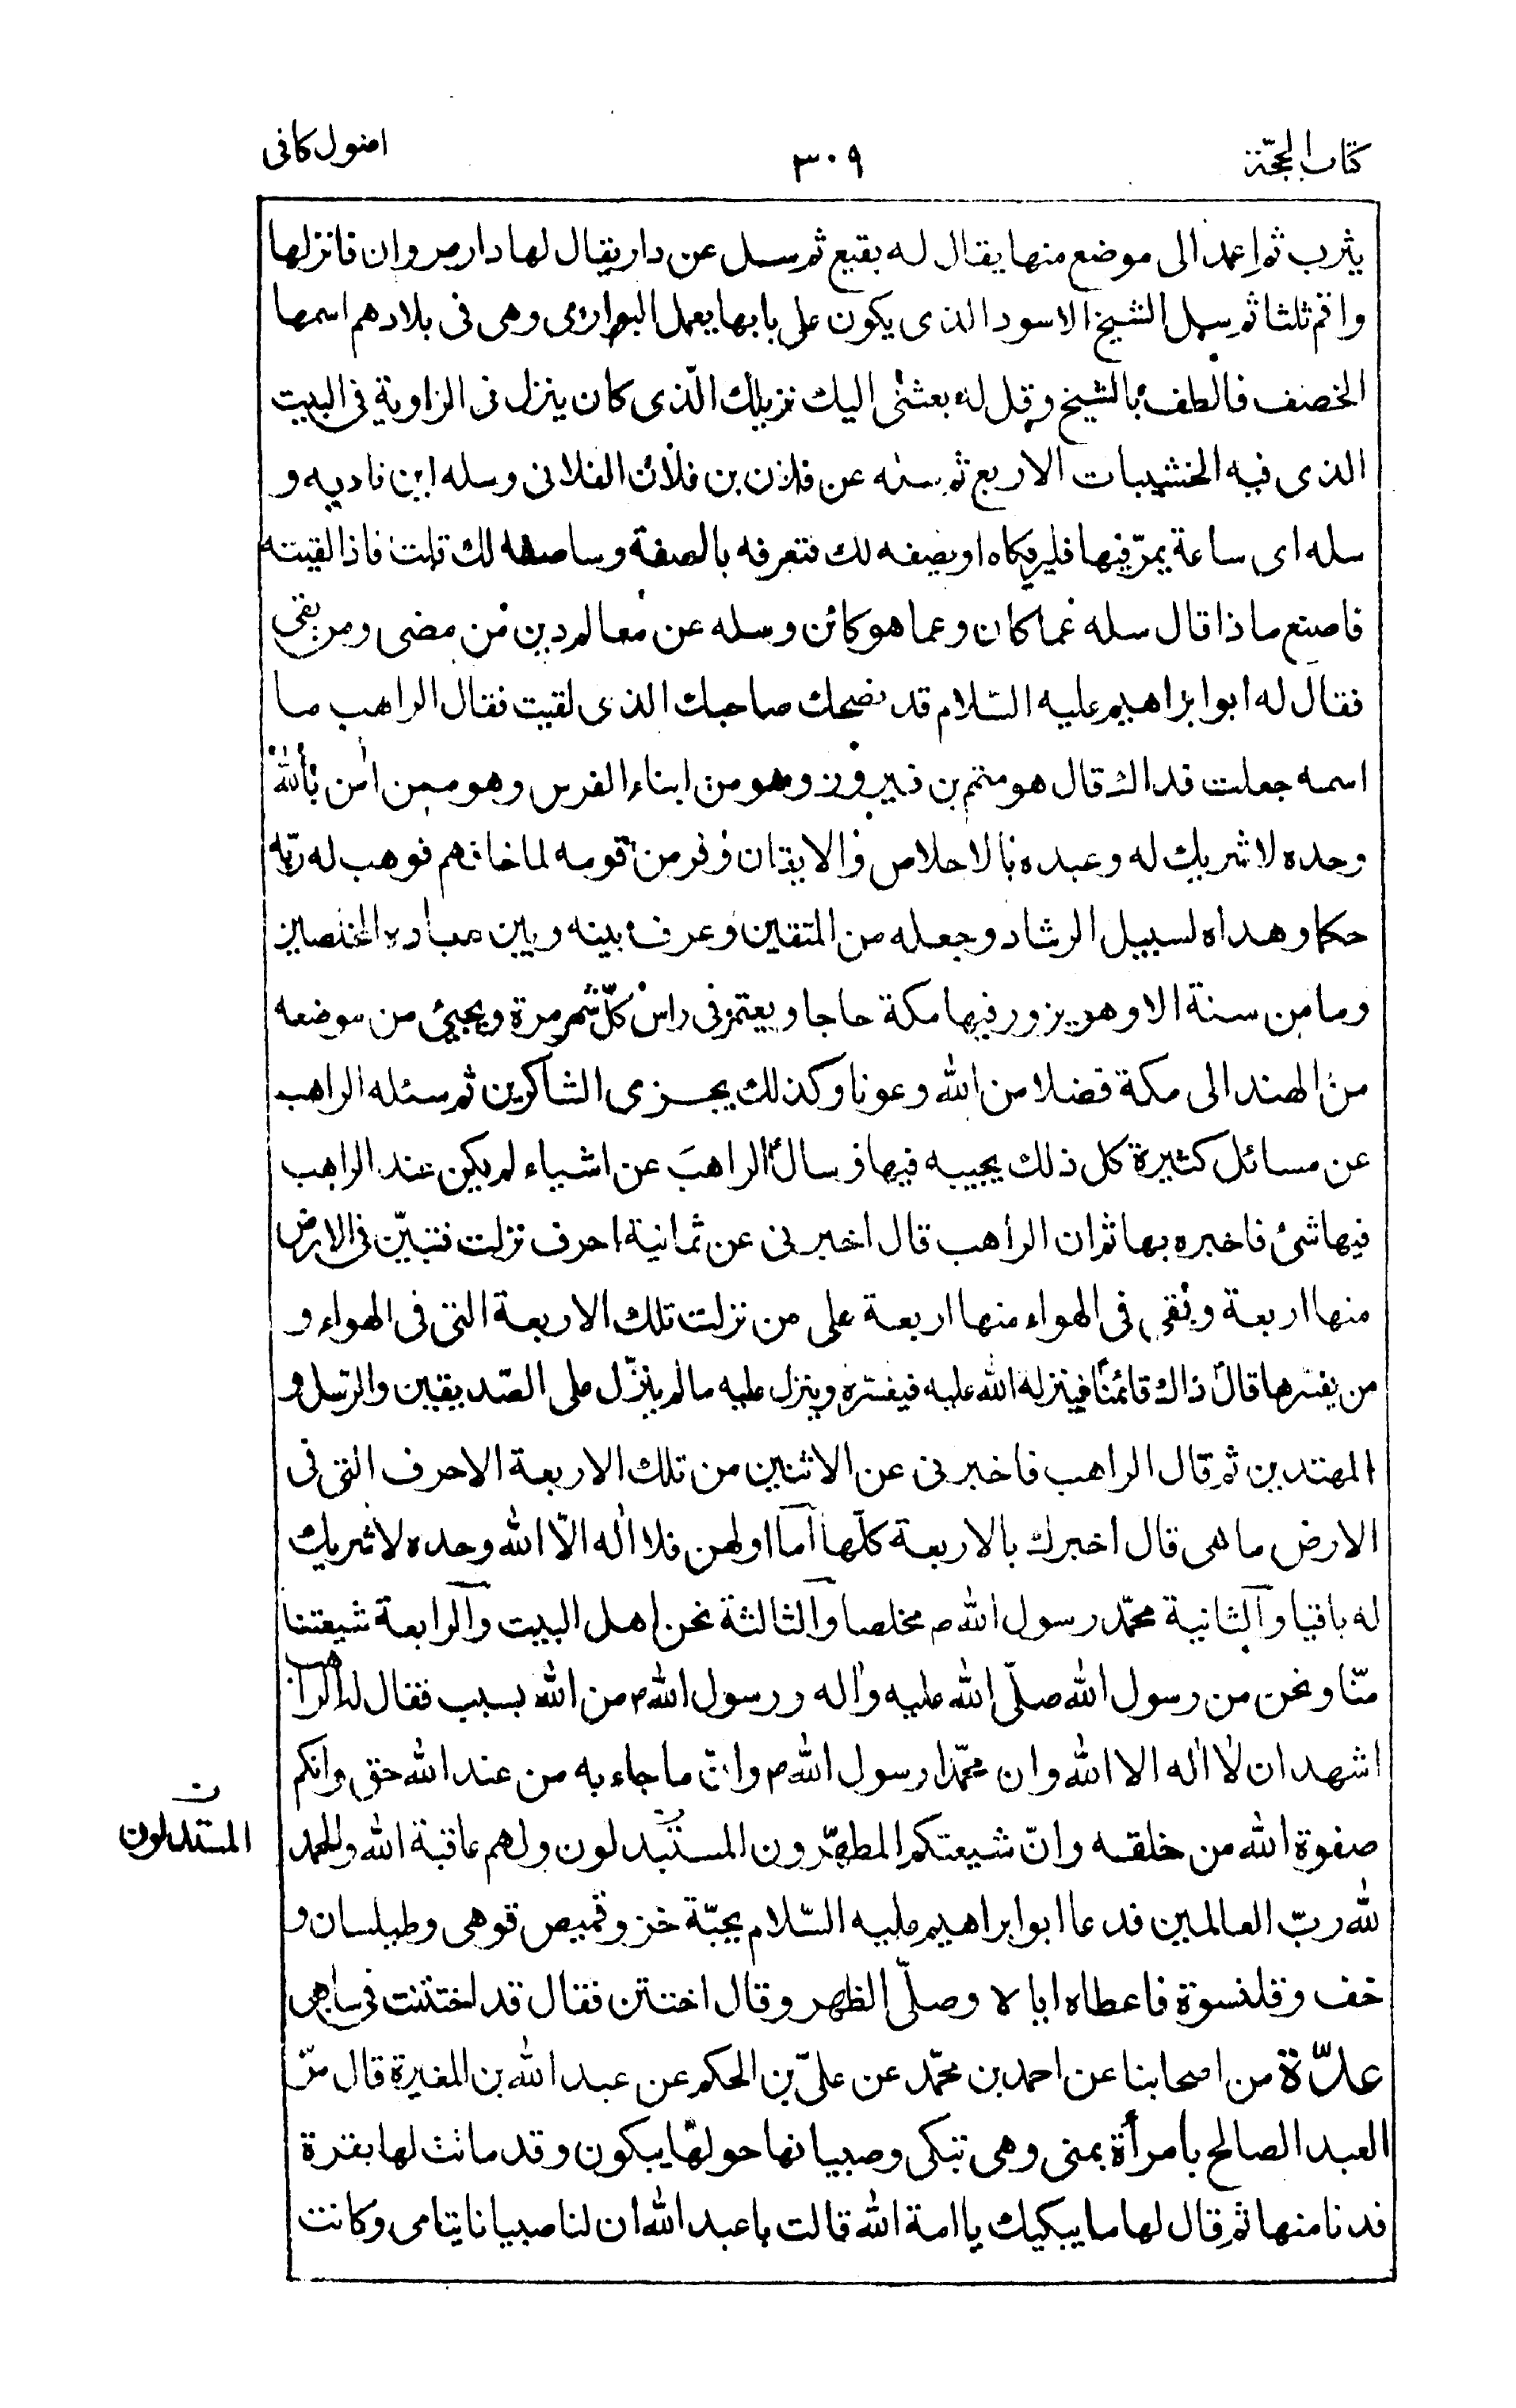 كتاب الحجّة
٣٠٩
اصول كافى
يثرب ثم اعمد الى موضع منها يقال له بقيع ثم سل عن دار يقال لها دار مروان فانزلها
واقم ثلثا ثم سل الشيخ الاسود الذى يكون على بابها يعمل البوارى وهى فى بلادهم اسمها
الخصف فالطف بالشيخ وقل له بعثنى اليك نزيلك الّذى كان ينزل فى الزاوية فى البيت
الذى فيه الخشيبات الاربع ثم سله عن فلان بن فلان الفلانى وسله اين ناديه و
سله اى ساعة يمرّ فيها فليريكاه او يصفه لك فتعرفه بالصفة وساصفه لك قلت فاذا لقيته
فاصنع ماذا قال سله عما كان وعما هو كائن وسله عن معالم دين من مضى ومن بقى
فقال له ابو ابراهيم عليه السّلام قد نصحك صاحبك الذى لقيت فقال الراهب ما
اسمه جعلت فداك قال هو متمم بن فيروز وهو من ابناء الفرس وهو ممن امن بالله
وحده لا شريك له وعبده بالاخلاص والايقان وفر من قومه لما خافهم فوهب له ربّه
حكما وهداه لسبيل الرشاد وجعله من المتقين وعرف بينه وبين عباده المخلصين
وما من سنة الا وهو يزور فيها مكة حاجا ويعتمر فى راس كلّ شهر مرة ويجيئ من موضعه
من الهند الى مكة فضلا من الله وعونا وكذلك يجزى الشاكرين ثم سئله الراهب
عن مسائل كثيرة كل ذلك يجيبه فيها وسال الراهبَ عن اشياء لم يكن عند الراهب
فيها شئ فاخبره بها ثم ان الراهب قال اخبرنى عن ثمانية احرف نزلت فتبيّن فى الارض
منها اربعة وبقى فى الهواء منها اربعة على من نزلت تلك الاربعة التى فى الهواء و
من يفسّرها قال ذاك قائمنا فينزله الله عليه فيفسّره وينزل عليه ما لم ينزّل على الصّديقين والرّسل و
المهتدين ثم قال الراهب فاخبرنى عن الاثنين من تلك الاربعة الاحرف التى فى
الارض ما هى قال اخبرك بالاربعة كلّها اما اولهن فلا اله الّا الله وحده لا شريك
له باقيا والثانية محمّد رسول الله ص مخلصا والثالثة نحن اهل البيت والرابعة شيعتنا
منّا ونحن من رسول الله صلّى الله عليه واله ورسول الله ص من الله بسبب فقال له الراهب
اشهد ان لا اله الا الله وان محمّدا رسول الله ص وانّ ما جاء به من عند الله حق وانكم
صفوة الله من خلقه وانّ شيعتكم المطهّرون المستبدلون ولهم عاقبة الله والحمد
المستدلون
ن
لله ربّ العالمين فدعا ابو ابراهيم عليه السّلام بجبّة خز وقميص قوهى وطيلسان و
خف وقلنسوة فاعطاه اياه وصلّى الظهر وقال اختتن فقال قد اختتنت فى سابعى
عدّة من اصحابنا عن احمد بن محمّد عن علىّ بن الحكم عن عبد الله بن المغيرة قال مرّ
العبد الصالح بامرأة بمنى وهى تبكى وصبيانها حولها يبكون وقد ماتت لها بقرة
فدنا منها ثم قال لها ما يبكيك يا امة الله قالت يا عبد الله ان لنا صبيانا يتامى وكانت